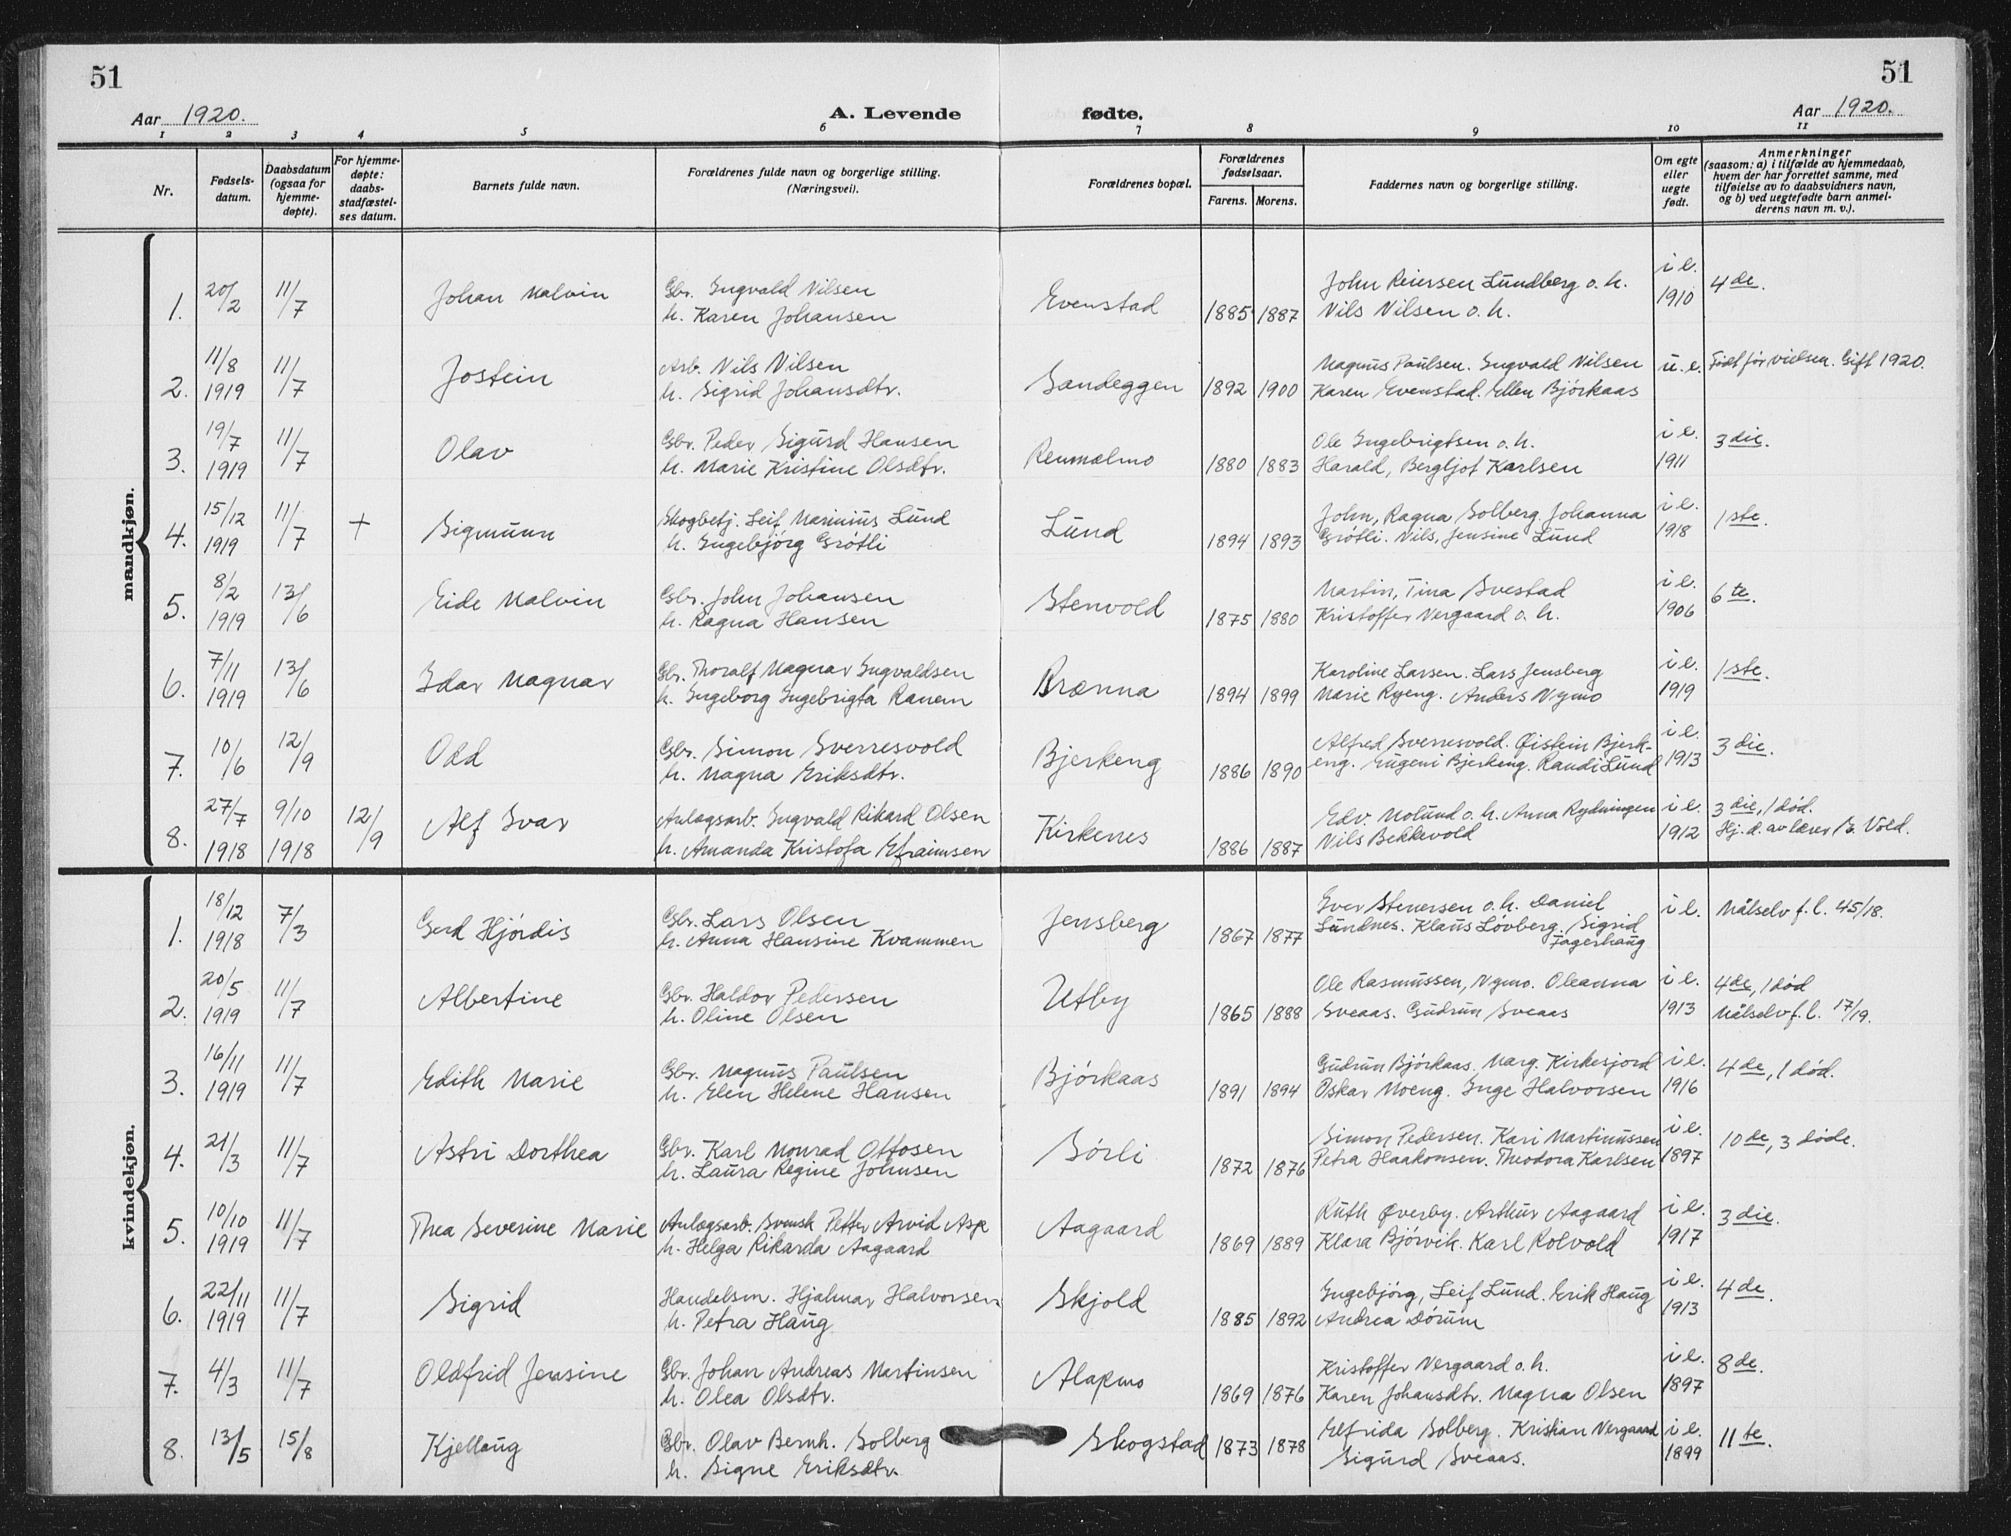 51
51
Aar 1920.
A. Levende fødte.
Aar 1920.
1 2 3 4 5 6 7 8 9 10 11
Nr.
Fødsels-datum.
Daabsdatum (ogsaa for hjemme-døpte).
For hjemme-døpte: daabs-stadfæstel-ses datum.
Barnets fulde navn.
Forældrenes fulde navn og borgerlige stilling. (Næringsvei).
Forældrenes bopæl.
Forældrenes fødselsaar.
Farens. Morens.
Faddernes navn og borgerlige stilling.
Om egte eller uegte født.
Anmerkninger
(saasom: a) i tilfælde av hjemmedaab,
hvem der har forrettet samme, med
tilføielse av to daabsvidners navn,
og b) ved uegtefødte barn anmel-
derens navn m. v.).
mandkjøn.
1. 20/2 11/7 Johan Malvin Gbr. Ingvald Nilsen Evenstad 1885 1887 John Reiersen Lundberg o. h. i e. 4de.
h. Karen Johansen Nils Nilsen o. h. 1910
2. 11/8 1919 11/7 Jostein Arb. Nils Nilsen Sandeggen 1892 1900 Magnus Paulsen. Ingvald Nilsen u. e. Født før vielsen. Gift 1920.
h. Sigrid Johansdtr. Karen Evenstad. Ellen Bjórkaas
3. 19/7 1919 11/7 Olav Gbr. Peder Sigurd Hansen Renmælmo 1880 1883 Ole Ingebrigtsen o. h. i e. 3die.
h. Marie Kristine Olsdtr. Harald, Bergljot Karlsen 1911
4. 15/12 1919 11/7 + Sigmunn Skogbetj. Leif Marinius Lund Lund 1894 1893 John, Ragna Solberg. Johanna i e. 1ste.
h. Ingebjórg Grótli Grótli. Nils, Jensine Lund 1918
5. 8/2 1919 13/6 Eide Malvin Gbr. John Johansen Stenvold 1875 1880 Martin, Tina Svestad i e. 6te.
h. Ragna Hansen Kristoffer Vergaard o. h. 1906
6. 7/11 1919 13/6 Idar Magnar Gbr. Thoralf Magnar Ingvaldsen Brænna 1894 1899 Karoline Larsen. Lars Jensberg i e. 1ste.
h. Ingeborg Ingebrigta Ranem Marie Ryeng. Anders Nymo 1919
7. 10/6 12/9 Odd Gbr. Simon Sverresvold Bjerkeng 1886 1890 Alfred Sverresvold. Øistein Bjerk- i e. 3die.
h. Magna Eriksdtr. eng. Eugeni Bjerkeng. Randi Lund 1913
8. 27/7 1918 9/10 1918 12/9 Alf Ivar Anlægsarb. Ingvald Rikard Olsen Kirkenes 1886 1887 Edv. Molund o. h. Anna Rydningen i e. 3die, 1 død.
h. Amanda Kristofa Efraimsen Nils Bekkevold 1912 Hj. d. av lærer B. Vold.
kvindekjøn.
1. 18/12 1918 7/3 Gerd Hjórdis Gbr. Lars Olsen Jensberg 1867 1877 Iver Stenersen o. h. Daniel i e. Målselv f. l. 45/18.
h. Anna Hansine Kvammen Lundnes. Klaus Lóvberg. Sigrid
Fagerhaug
2. 20/5 1919 11/7 Albertine Gbr. Haldor Pedersen Utby 1865 1888 Ole Rasmussen, Nymo. Oleanna i e. 4de, 1 død
h. Oline Olsen Sveaas. Gudrun Sveaas 1913 Målselv f. l. 17/19.
3. 16/11 1919 11/7 Edith Marie Gbr. Magnus Paulsen Bjórkaas 1891 1894 Gudrun Bjórkaas. Marg. Kirkesjord i e. 4de, 1 død.
h. Elen Helene Hansen Oskar Moeng. Inge Halvorsen 1916
4. 21/3 11/7 Astri Dorthea Gbr. Karl Monrad Ottosen Sórli 1872 1876 Simon Pedersen. Kari Martinussen i e. 10de, 3 døde.
h. Laura Regine Johnsen Petra Haakonsen. Theodora Karlsen 1897
5. 10/10 1919 11/7 Thea Severine Marie Anlægsarb. Svensk Petter Arvid Asp Aagaard 1869 1889 Ruth Øverby. Arthur Aagaard i e. 3die.
h. Helga Rikarda Aagaard Klara Bjórvik. Karl Rolvold 1917
6. 22/11 1919 11/7 Sigrid Handelsm. Hjalmar Halvorsen Skjold 1885 1892 Ingebjórg, Leif Lund. Erik Haug i e. 4de.
h. Petra Haug Andrea Dórum 1913
7. 4/3 11/7 Oldfrid Jensine Gbr. Johan Andreas Martinsen Alapmo 1869 1876 Kristoffer Vergaard o. h. i e. 8de.
h. Olea Olsdtr. Karen Johansdtr. Magna Olsen 1897
8. 13/5 15/8 Kjellaug Gbr. Olav Bernh. Solberg Skogstad 1873 1878 Elfrida Solberg. Kristian Vergaard i e. 11te.
h. Signe Eriksdtr. Sigurd Sveaas. 1899